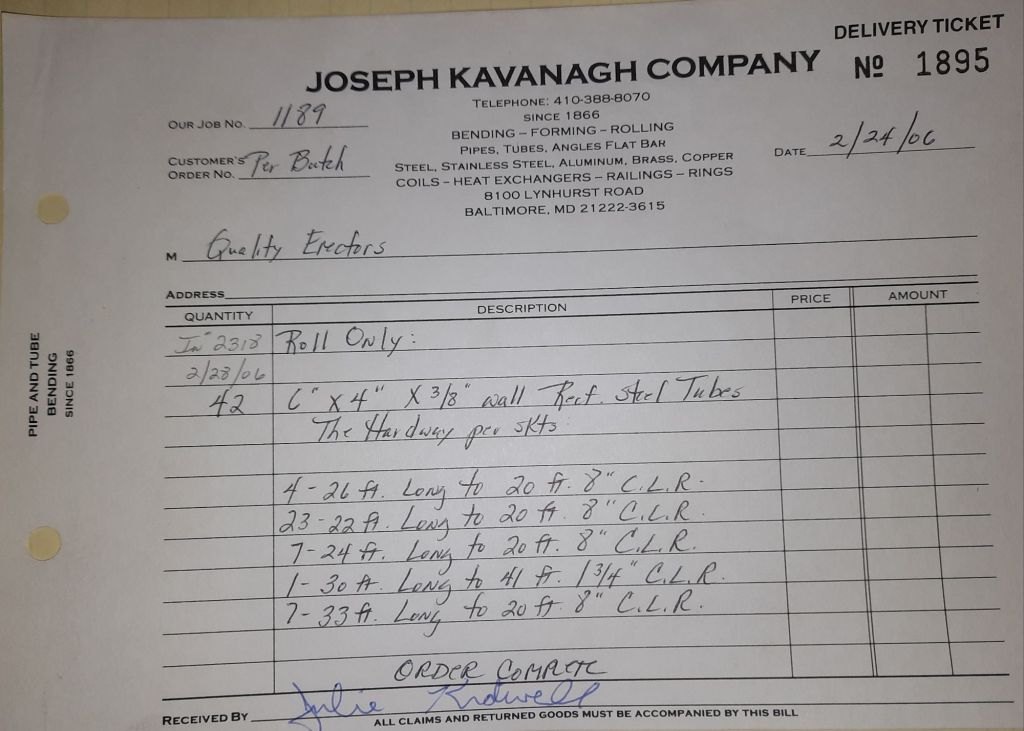 DELIVERY TICKET
JOSEPH KAVANAGH COMPANY Nº 1895
TELEPHONE: 410-388-8070
SINCE 1866
BENDING – FORMING – ROLLING
PIPES, TUBES, ANGLES FLAT BAR
STEEL, STAINLESS STEEL, ALUMINUM, BRASS, COPPER
COILS – HEAT EXCHANGERS – RAILINGS – RINGS
8100 LYNHURST ROAD
BALTIMORE, MD 21222-3615
OUR JOB NO. 1189
CUSTOMER'S ORDER NO. Per Butch
DATE 2/24/06
M Quality Erectors
ADDRESS
QUANTITY DESCRIPTION PRICE AMOUNT
In 2318 Roll Only:
2/28/06
42 6" x 4" x 3/8" wall Rect. Steel Tubes
The Hardway per skts
4 - 26 ft. Long to 20 ft. 8" C.L.R.
23 - 22 ft. Long to 20 ft. 8" C.L.R.
7 - 24 ft. Long to 20 ft. 8" C.L.R.
1 - 30 ft. Long to 41 ft. 1 3/4" C.L.R.
7 - 33 ft. Long to 20 ft. 8" C.L.R.
ORDER COMPLETE
RECEIVED BY Julie Kidwell
ALL CLAIMS AND RETURNED GOODS MUST BE ACCOMPANIED BY THIS BILL
PIPE AND TUBE
BENDING
SINCE 1866